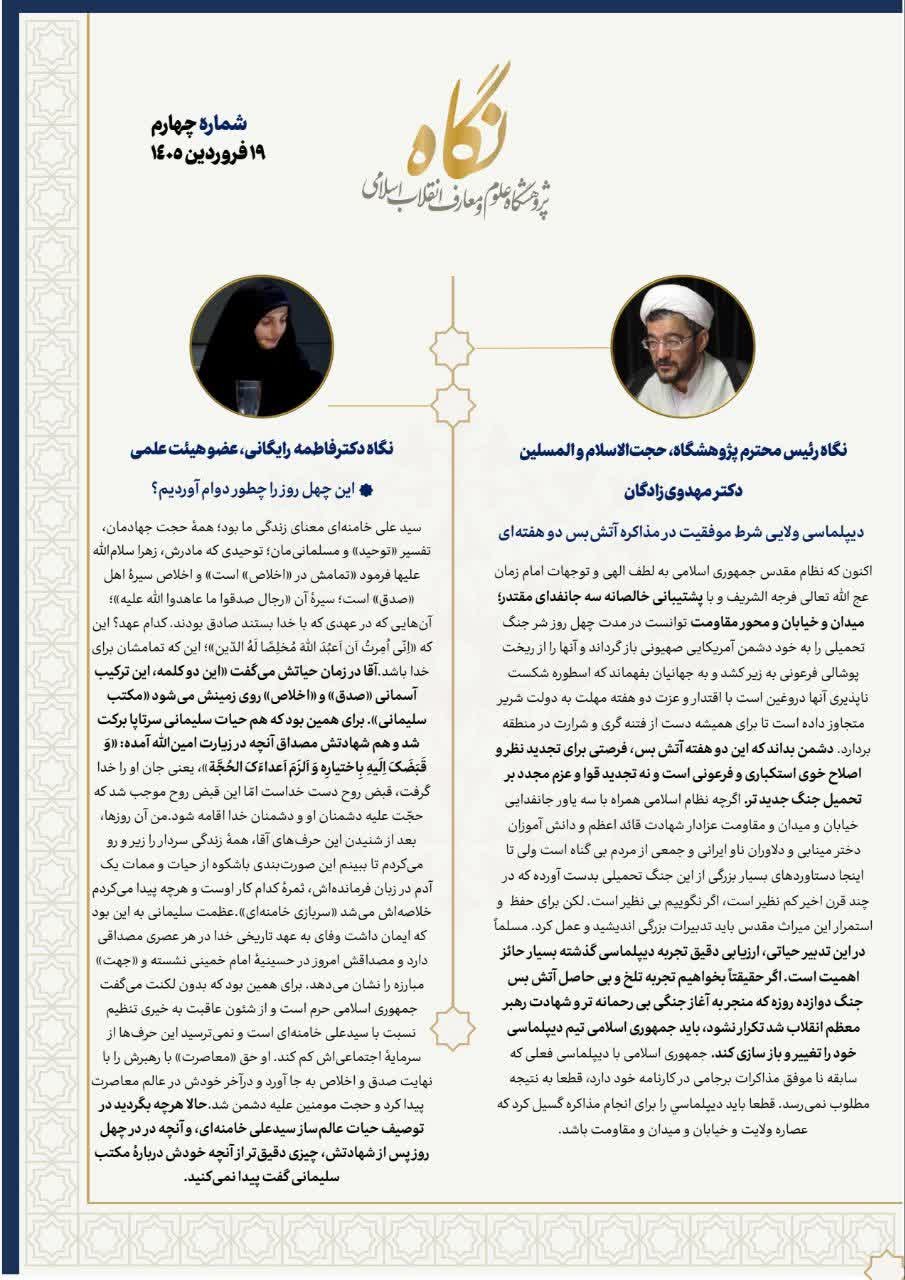 نگاه
پژوهشگاه علوم و معارف انقلاب اسلامی
شماره چهارم
۱۹ فروردین ۱۴۰۵
نگاه رئیس محترم پژوهشگاه، حجت‌الاسلام و المسلین
دکتر مهدوی‌زادگان
دیپلماسی ولایی شرط موفقیت در مذاکره آتش‌بس دو هفته‌ای
اکنون که نظام مقدس جمهوری اسلامی به لطف الهی و توجهات امام زمان
عج الله تعالی فرجه الشریف و با پشتیبانی خالصانه سه جانفدای مقتدر؛
میدان و خیابان و محور مقاومت توانست در مدت چهل روز شر جنگ
تحمیلی را به خود دشمن آمریکایی صهیونی باز گرداند و آنها را از ریخت
پوشالی فرعونی به زیر کشد و به جهانیان بفهماند که اسطوره شکست
ناپذیری آنها دروغین است با اقتدار و عزت دو هفته مهلت به دولت شریر
متجاوز داده است تا برای همیشه دست از فتنه گری و شرارت در منطقه
بردارد. دشمن بداند که این دو هفته آتش بس، فرصتی برای تجدید نظر و
اصلاح خوی استکباری و فرعونی است و نه تجدید قوا و عزم مجدد بر
تحمیل جنگ جدید تر. اگرچه نظام اسلامی همراه با سه یاور جانفدایی
خیابان و میدان و مقاومت عزادار شهادت قائد اعظم و دانش آموزان
دختر مینابی و دلاوران ناو ایرانی و جمعی از مردم بی گناه است ولی تا
اینجا دستاوردهای بسیار بزرگی از این جنگ تحمیلی بدست آورده که در
چند قرن اخیر کم نظیر است، اگر نگوییم بی نظیر است. لکن برای حفظ و
استمرار این میراث مقدس باید تدبیرات بزرگی اندیشید و عمل کرد. مسلماً
در این تدبیر حیاتی، ارزیابی دقیق تجربه دیپلماسی گذشته بسیار حائز
اهمیت است. اگر حقیقتاً بخواهیم تجربه تلخ و بی حاصل آتش بس
جنگ دوازده روزه که منجر به آغاز جنگی بی رحمانه تر و شهادت رهبر
معظم انقلاب شد تکرار نشود، باید جمهوری اسلامی تیم دیپلماسی
خود را تغییر و باز سازی کند. جمهوری اسلامی با دیپلماسی فعلی که
سابقه نا موفق مذاکرات برجامی در کارنامه خود دارد، قطعا به نتیجه
مطلوب نمی‌رسد. قطعا باید دیپلماسي را برای انجام مذاکره گسیل کرد که
عصاره ولایت و خیابان و میدان و مقاومت باشد.
نگاه دکتر فاطمه رایگانی، عضو هیئت علمی
این چهل روز را چطور دوام آوردیم؟
سید علی خامنه‌ای معنای زندگی ما بود؛ همهٔ حجت جهادمان،
تفسیر «توحید» و مسلمانی‌مان؛ توحیدی که مادرش، زهرا سلام‌الله
علیها فرمود «تمامش در «اخلاص» است» و اخلاص سیرهٔ اهل
«صدق» است؛ سیرهٔ آن «رجال صدقوا ما عاهدوا الله علیه»؛
آن‌هایی که در عهدی که با خدا بستند صادق بودند. کدام عهد؟ این
که «اِنّی اُمِرتُ اَن اَعبُدَ اللهَ مُخلِصًا لَهُ الدّین»؛ این که تمامشان برای
خدا باشد.آقا در زمان حیاتش می‌گفت «این دو کلمه، این ترکیب
آسمانی «صدق» و «اخلاص» روی زمینش می‌شود «مکتب
سلیمانی». برای همین بود که هم حیات سلیمانی سرتاپا برکت
شد و هم شهادتش مصداق آنچه در زیارت امین‌الله آمده: «وَ
قَبَضَکَ اِلَیهِ بِاختیارِه وَ اَلزَمَ اَعداءَکَ الحُجَّة»، یعنی جان او را خدا
گرفت، قبض روح دست خداست امّا این قبض روح موجب شد که
حجّت علیه دشمنان او و دشمنان خدا اقامه شود.من آن روزها،
بعد از شنیدن این حرف‌های آقا، همهٔ زندگی سردار را زیر و رو
می‌کردم تا ببینم این صورت‌بندی باشکوه از حیات و ممات یک
آدم در زبان فرمانده‌اش، ثمرهٔ کدام کار اوست و هرچه پیدا می‌کردم
خلاصه‌اش می‌شد «سربازی خامنه‌ای».عظمت سلیمانی به این بود
که ایمان داشت وفای به عهد تاریخی خدا در هر عصری مصداقی
دارد و مصداقش امروز در حسینیهٔ امام خمینی نشسته و «جهت»
مبارزه را نشان می‌دهد. برای همین بود که بدون لکنت می‌گفت
جمهوری اسلامی حرم است و از شئون عاقبت به خیری تنظیم
نسبت با سیدعلی خامنه‌ای است و نمی‌ترسید این حرف‌ها از
سرمایهٔ اجتماعی‌اش کم کند. او حق «معاصرت» با رهبرش را با
نهایت صدق و اخلاص به جا آورد و درآخر خودش در عالم معاصرت
پیدا کرد و حجت مومنین علیه دشمن شد.حالا هرچه بگردید در
توصیف حیات عالم‌ساز سیدعلی خامنه‌ای، و آنچه در در چهل
روز پس از شهادتش، چیزی دقیق‌تر از آنچه خودش دربارهٔ مکتب
سلیمانی گفت پیدا نمی‌کنید.